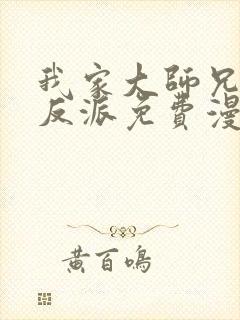 我家大師兄
反派免費漫
黃百鳴